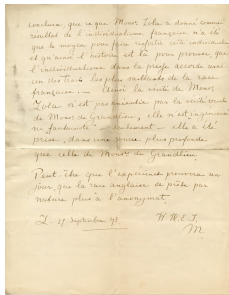 conclure, que ce que Monsr Zola a donné comme
résultat de l'individualisme française n'a été
que le moyen pour faire
et qu'ainsi l'histoire est là pour prouver que
l'individualisme dans la presse accorde avec
les plus saillants de la race
française. — Ainsi la visite de Monsr
Zola n'est pas amoindrie par la
de Monsr de Grandlieu, elle n'est
ni seulement — elle a été
prise, dans une plus profonde
que celle de Monsr de Grandlieu.
Peut-être que l'expérience prouvera un
jour, que la race anglaise se prête par
nature plus à l'anonymat.
27 Septembre 93.
H.
M